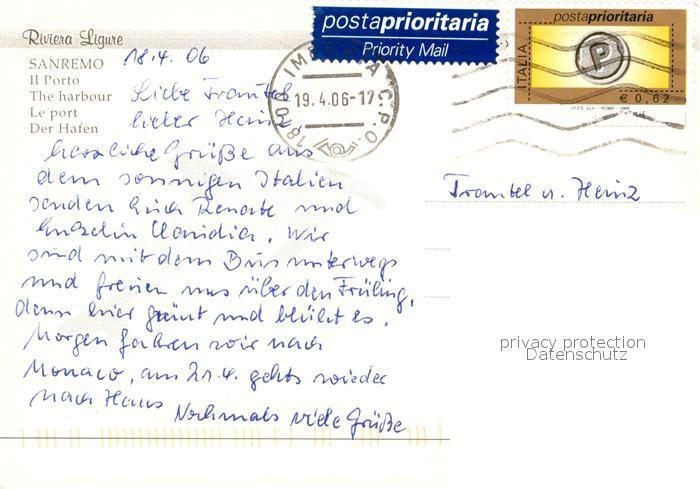 Riviera Ligure
SANREMO
Il Porto
The harbour
Le port
Der Hafen
postaprioritaria
Priority Mail
postaprioritaria
ITALIA
€ 0,62
IMPERIA C.P.O.
19.4.06-17
18100
18.4.06
Liebe Trautel
lieber Heinz
herzliche Grüße aus
dem sonnigen Italien
senden Euch Renate und
Enkelin Claudia. Wir
sind mit dem Bus unterwegs
und freuen uns über den Frühling,
denn hier grünt und blüht es.
Morgen fahren wir nach
Monaco, am 21.4. gehts wieder
nach Haus
Nochmals viele Grüße
Trautel u. Heinz
privacy protection
Datenschutz